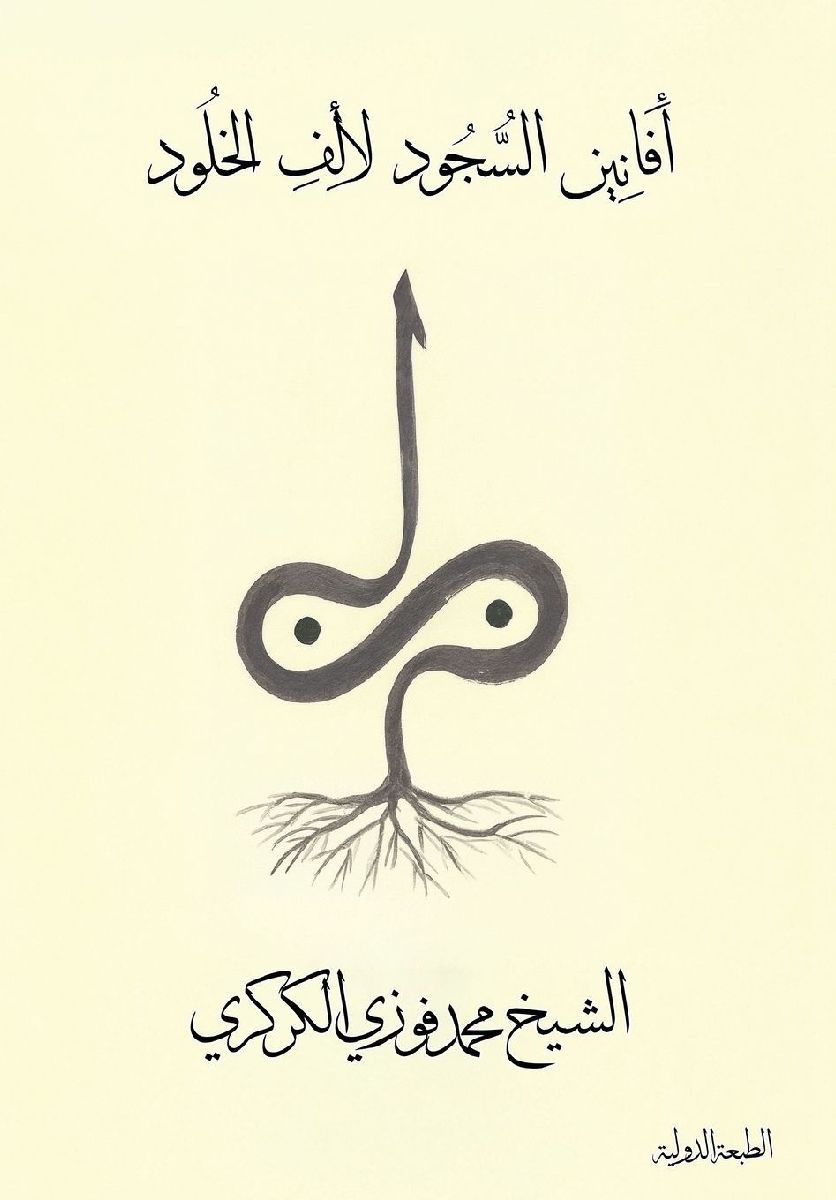 أَفَانِين السُّجُود لأَلِفِ الخلُود
الشيخ محمد فوزي الكركري
الطبعة الدولية